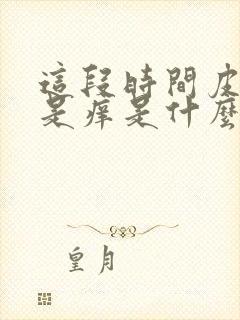 這段時間皮
是痒是什麼
皇月